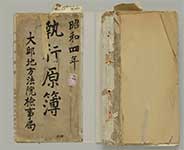 昭和四年
執行原簿
大邱地方法院検事局